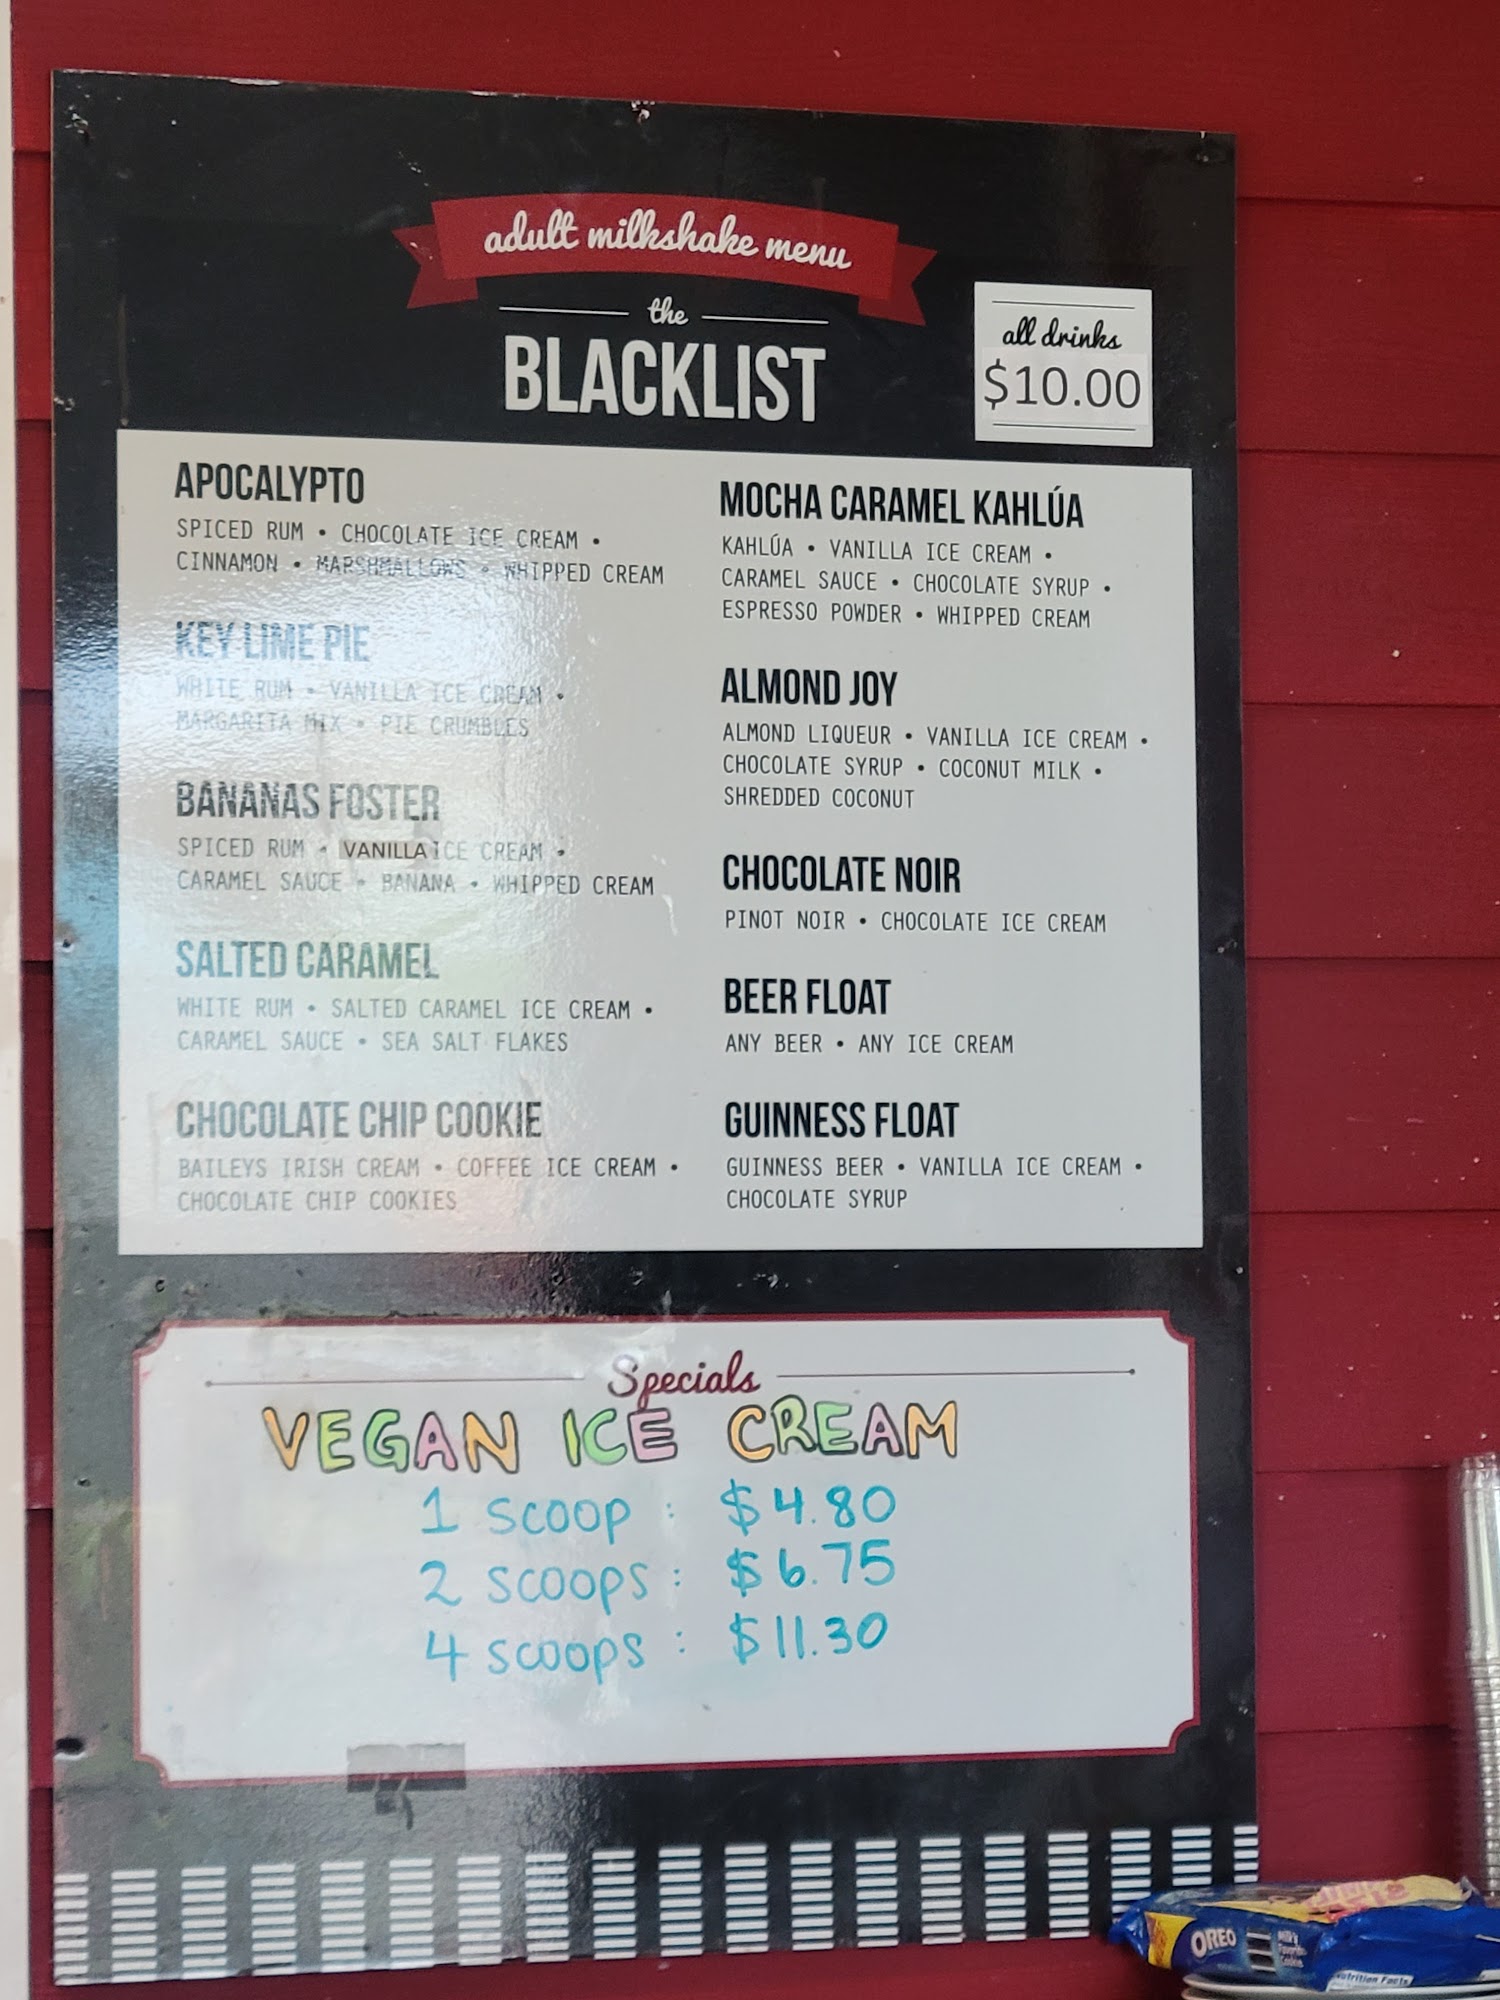 adult milkshake menu
the
BLACKLIST
all drinks
$10.00
APOCALYPTO
SPICED RUM • CHOCOLATE ICE CREAM •
CINNAMON • MARSHMALLOWS • WHIPPED CREAM
KEY LIME PIE
WHITE RUM • VANILLA ICE CREAM •
MARGARITA MIX • PIE CRUMBLES
BANANAS FOSTER
SPICED RUM • VANILLA ICE CREAM •
CARAMEL SAUCE • BANANA • WHIPPED CREAM
SALTED CARAMEL
WHITE RUM • SALTED CARAMEL ICE CREAM •
CARAMEL SAUCE • SEA SALT FLAKES
CHOCOLATE CHIP COOKIE
BAILEYS IRISH CREAM • COFFEE ICE CREAM •
CHOCOLATE CHIP COOKIES
MOCHA CARAMEL KAHLÚA
KAHLÚA • VANILLA ICE CREAM •
CARAMEL SAUCE • CHOCOLATE SYRUP •
ESPRESSO POWDER • WHIPPED CREAM
ALMOND JOY
ALMOND LIQUEUR • VANILLA ICE CREAM •
CHOCOLATE SYRUP • COCONUT MILK •
SHREDDED COCONUT
CHOCOLATE NOIR
PINOT NOIR • CHOCOLATE ICE CREAM
BEER FLOAT
ANY BEER • ANY ICE CREAM
GUINNESS FLOAT
GUINNESS BEER • VANILLA ICE CREAM •
CHOCOLATE SYRUP
Specials
VEGAN ICE CREAM
1 SCOOP : $4.80
2 SCOOPS : $6.75
4 SCOOPS : $11.30
OREO
Milk's
Favorite
Cookie
Nutrition Facts